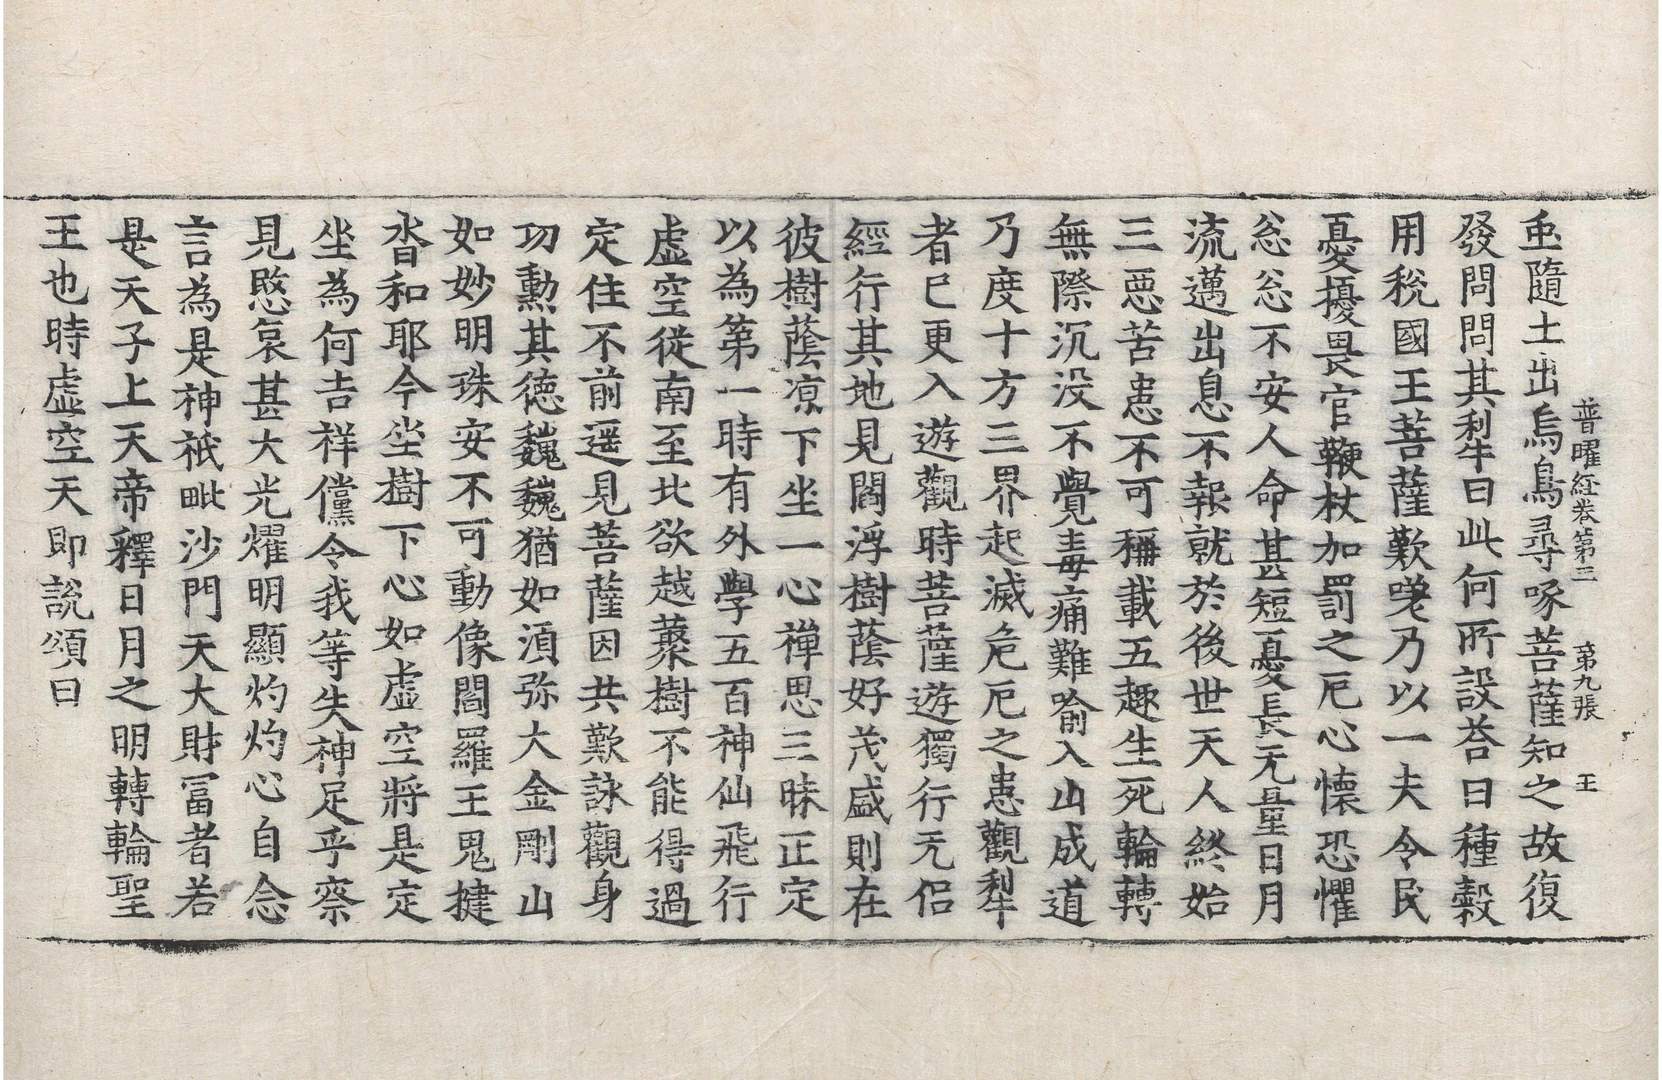 普曜経卷第三 第九張 王
𧈢隨土出烏鳥尋啄菩薩知之故復
發問問其犁牛曰此何所設荅曰種穀
用稅國王菩薩歎嘆乃以一夫令民
憂擾畏官鞭杖加罰之厄心懷恐懼
忩忩不安人命甚短憂長无量日月
流邁出息不報就於後世天人終始
三惡苦患不可稱載五趣生死輪轉
無際沉没不覺毒痛難喻入山成道
乃度十方三界起滅危厄之患觀犁
者已更入遊觀時菩薩遊獨行无侶
經行其地見閻浮樹蔭好茂盛則在
彼樹蔭凉下坐一心禪思三昧正定
以為第一時有外學五百神仙飛行
虛空從南至北欲越藂樹不能得過
定住不前遥見菩薩因共歎詠觀身
功勳其德巍巍猶如湏弥大金剛山
如妙明珠安不可動像閻羅王鬼揵
沓和耶今坐樹下心如虛空將是定
坐為何吉祥儻令我等失神足乎察
見愍哀甚大光燿明顯灼灼心自念
言為是神祇毗沙門天大財冨者若
是天子上天帝釋日月之明轉輪聖
王也時虛空天即說頌曰